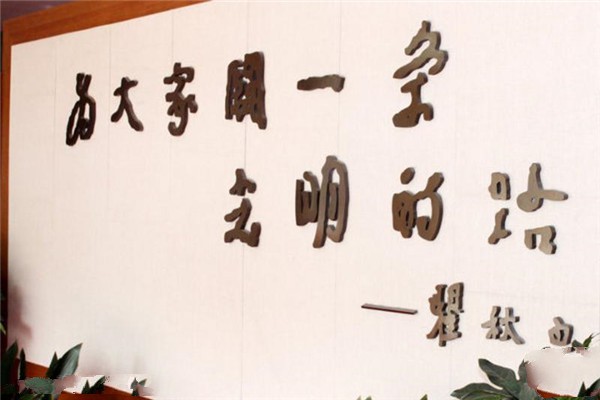 為大家闢一条
光明的路
—瞿秋白